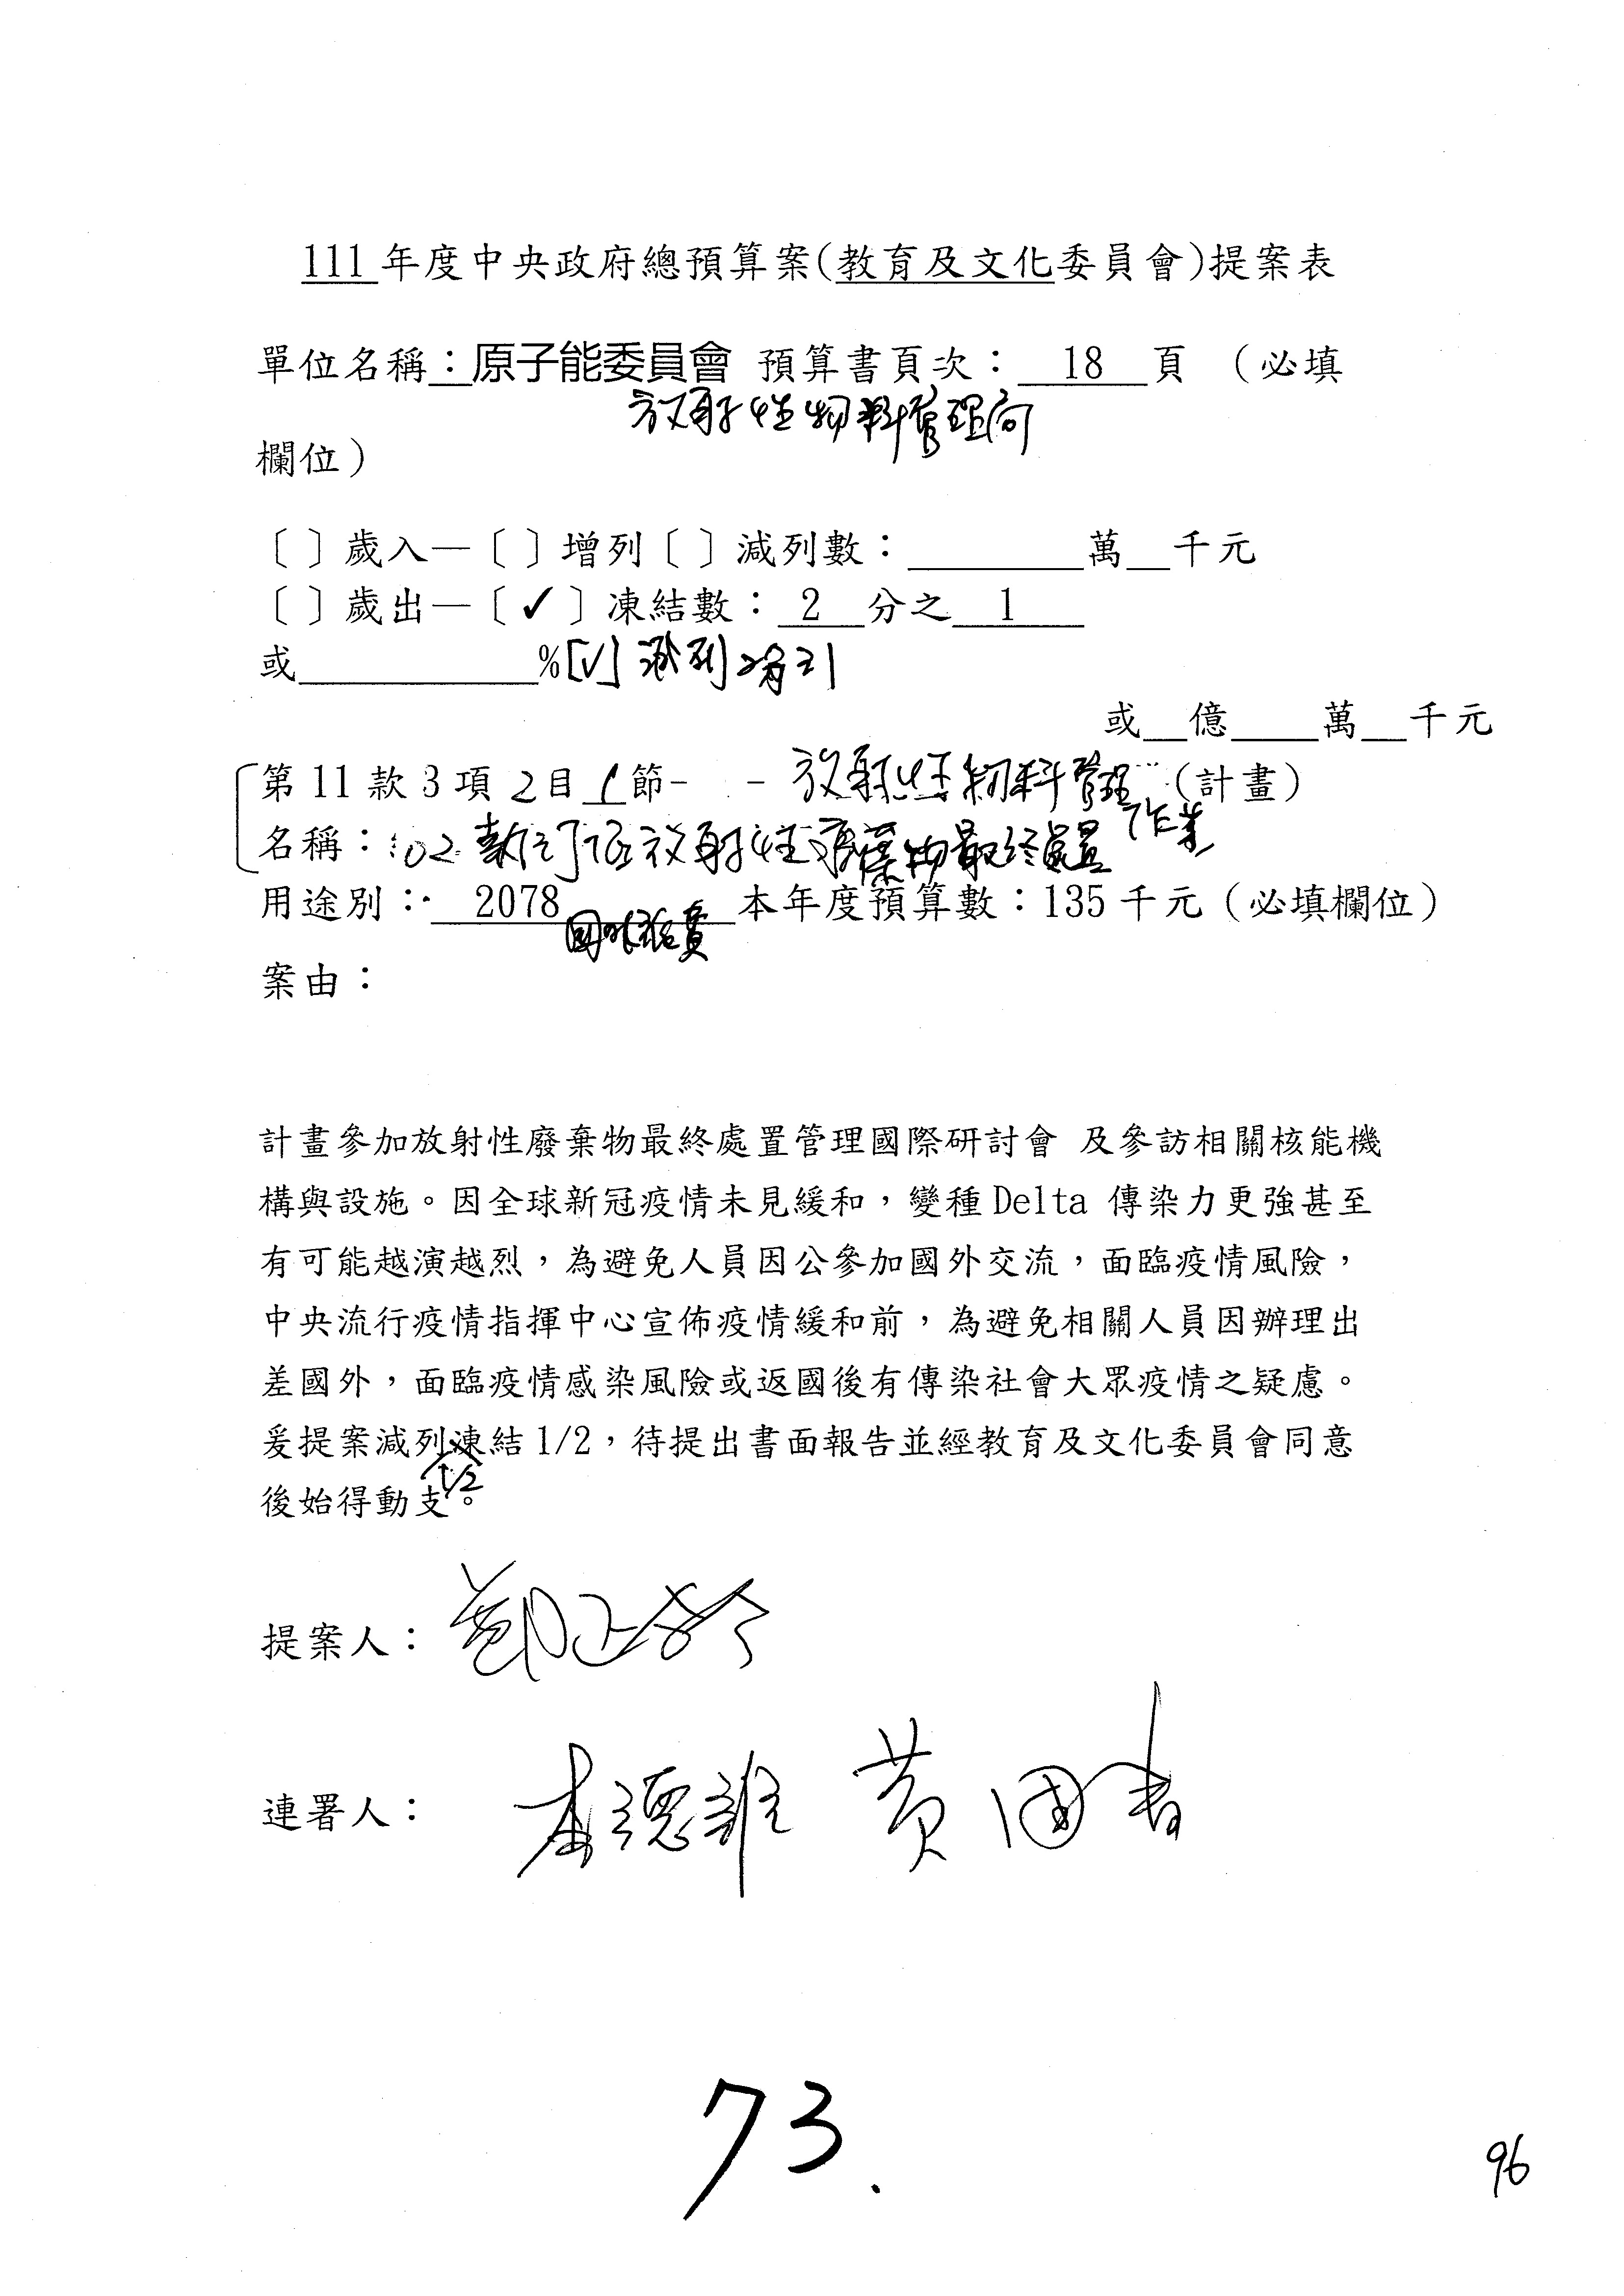 111年度中央政府總預算案(教育及文化委員會)提案表
單位名稱：原子能委員會 預算書頁次： 18 頁 （必填
放射性物料管理局
欄位）
〔 〕歲入—〔 〕增列〔 〕減列數：________萬__千元
〔 〕歲出—〔✓〕凍結數： 2 分之 1
或________%[✓]減列2分之1
或__億____萬__千元
第11款3項2目1節- - 放射性物料管理作業（計畫）
名稱：02執行低放射性廢棄物最終處置
用途別： 2078 本年度預算數：135千元（必填欄位）
國外旅費
案由：
計畫參加放射性廢棄物最終處置管理國際研討會 及參訪相關核能機
構與設施。因全球新冠疫情未見緩和，變種Delta 傳染力更強甚至
有可能越演越烈，為避免人員因公參加國外交流，面臨疫情風險，
中央流行疫情指揮中心宣佈疫情緩和前，為避免相關人員因辦理出
差國外，面臨疫情感染風險或返國後有傳染社會大眾疫情之疑慮。
爰提案減列凍結1/2，待提出書面報告並經教育及文化委員會同意
1/2
後始得動支。
提案人：鄭正鈐
連署人： 李德維 黃國書
73.
96